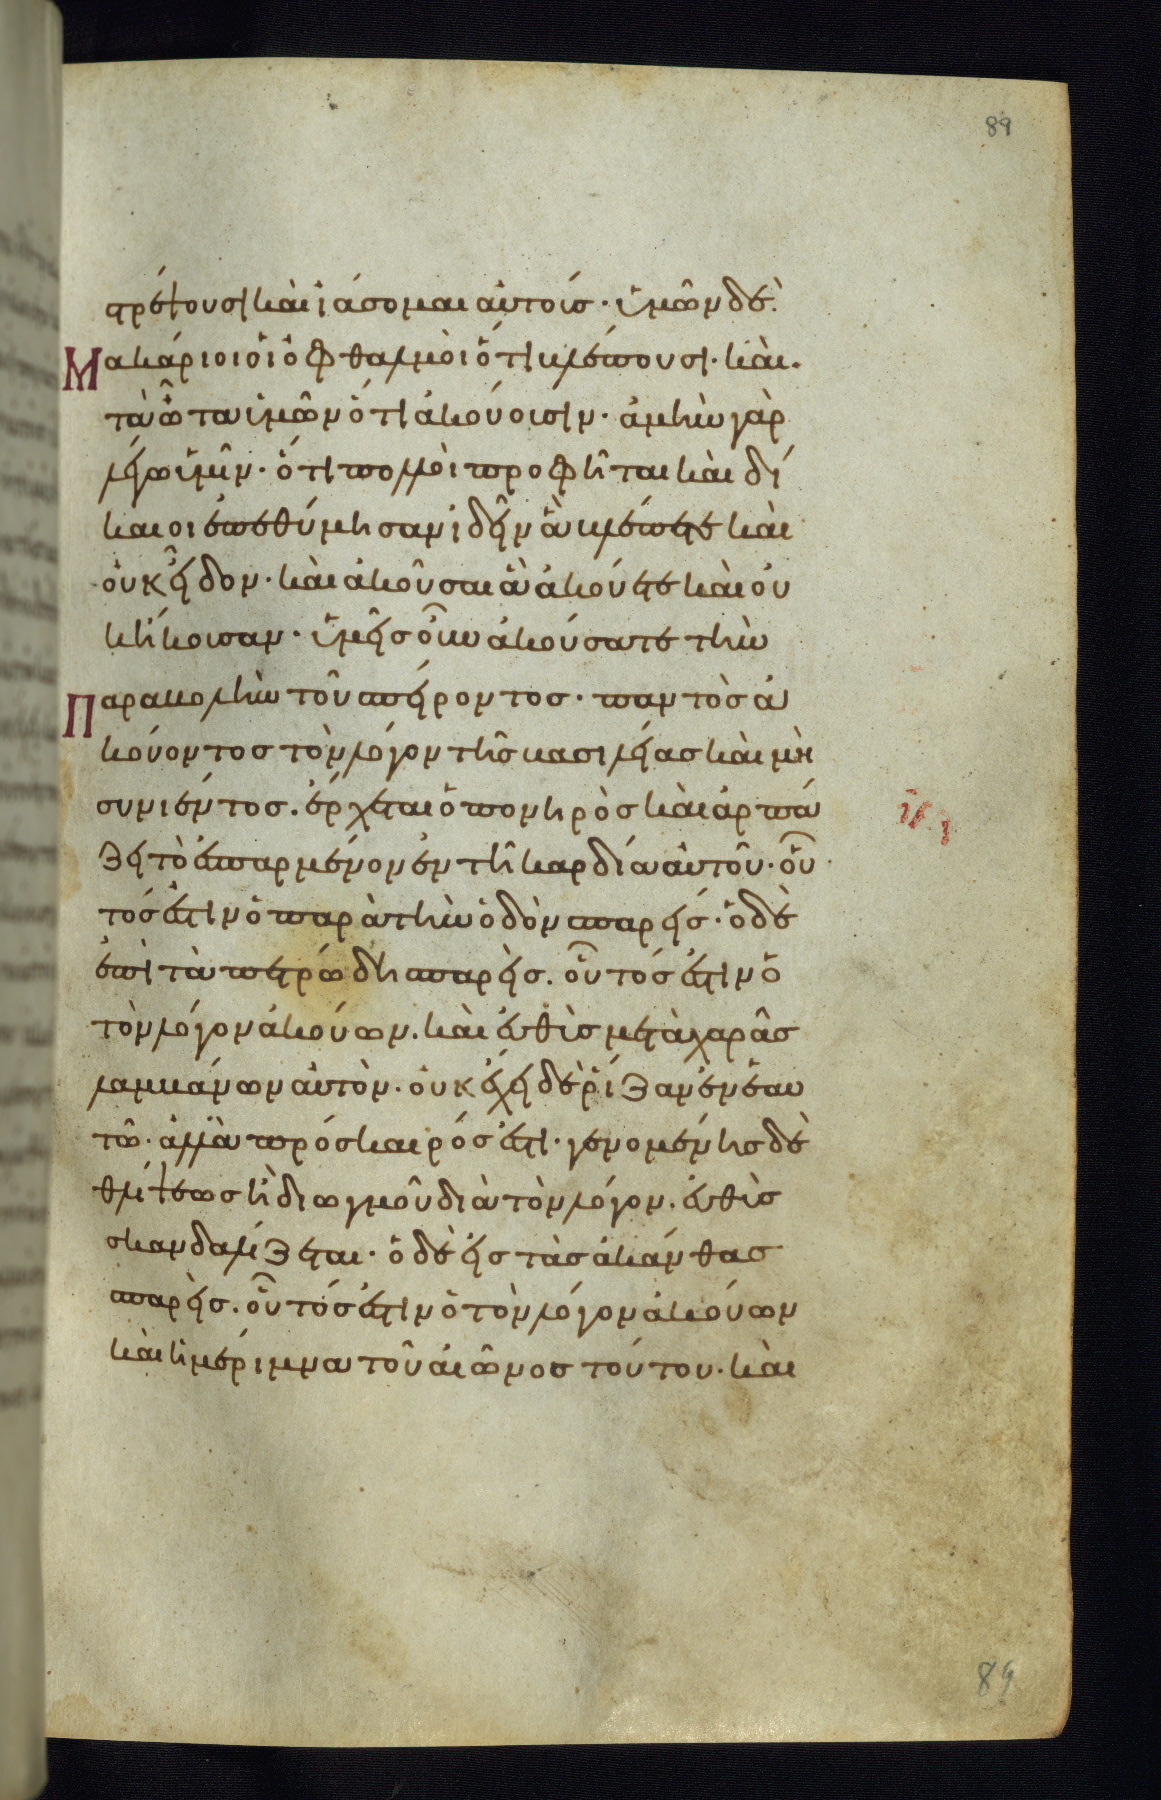 89
τρέψουσι καὶ ἰάσομαι αὐτοίσ· ὑμῶν δὲ.
Μακάριοι οἱ ὀφθαλμοὶ ὅτι βλέπουσι· καὶ.
τὰ ὦτα ὑμῶν ὅτι ἀκούουσιν· ἀμὴν γὰρ
λέγω ὑμῖν· ὅτι πολλοὶ προφῆται καὶ δί
καιοι ἐπεθύμησαν ἰδεῖν ἃ βλέπετε καὶ
οὐκ εἶδον· καὶ ἀκοῦσαι ἃ ἀκούετε καὶ οὐ
κ ήκουσαν· ὑμεῖσ οὖν ἀκούσατε τὴν
Παραβολὴν τοῦ σπείροντοσ· παντὸσ ἀ
κούοντοσ τὸν λόγον τῆσ βασιλείασ καὶ μὴ
συνιέντοσ. ἔρχεται ὁ πονηρὸσ καὶ ἁρπά
ζει τὸ ἐσπαρμένον ἐν τῆ καρδία αὐτοῦ· οὗ
τόσ ἐστιν ὁ παρὰ τὴν ὁδὸν σπαρείσ· ὁ δὲ
ἐπὶ τὰ πετρώδη σπαρεὶσ. οὗτόσ ἐστιν ὁ
τὸν λόγον ἀκούων. καὶ εὐθὺσ μετὰ χαρᾶσ
λαμβάνων αὐτὸν· οὐκ ἔχει δὲ ῥίζαν ἐν ἑαυ
τῶ· ἀλλὰ πρόσκαιρόσ ἐστι· γενομένησ δὲ
θλίψεωσ ἢ διωγμοῦ διὰ τὸν λόγον. εὐθὺσ
σκανδαλίζεται· ὁ δὲ εἰσ τὰσ ἀκάνθασ
σπαρεὶσ. οὗτόσ ἐστιν ὁ τὸν λόγον ἀκούων
καὶ ἡ μέριμνα τοῦ αἰῶνοσ τούτου· καὶ
89